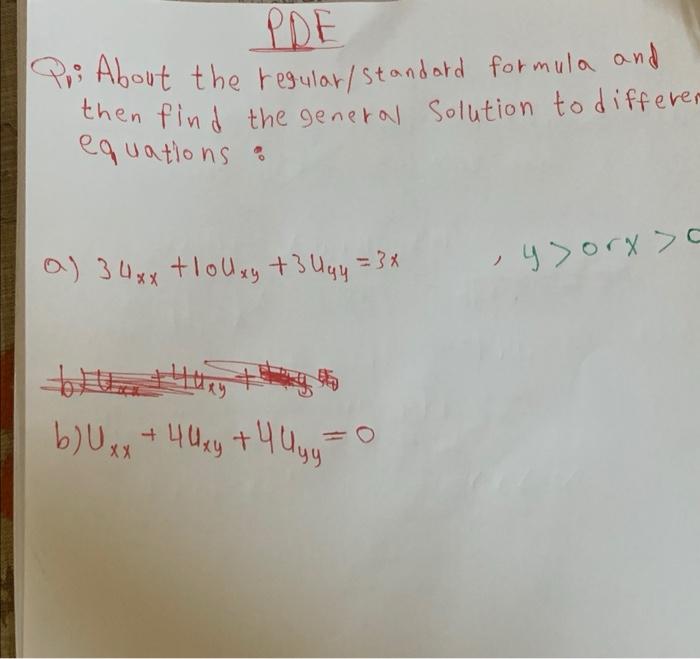 PDE
Q1: About the regular/standard formula and
then find the general solution to differen
equations :
a) 3uxx +10uxy +3uyy = 3x , y > 0 r x > 0
b) Uxx + 4Uxy + 4Uyy = 0